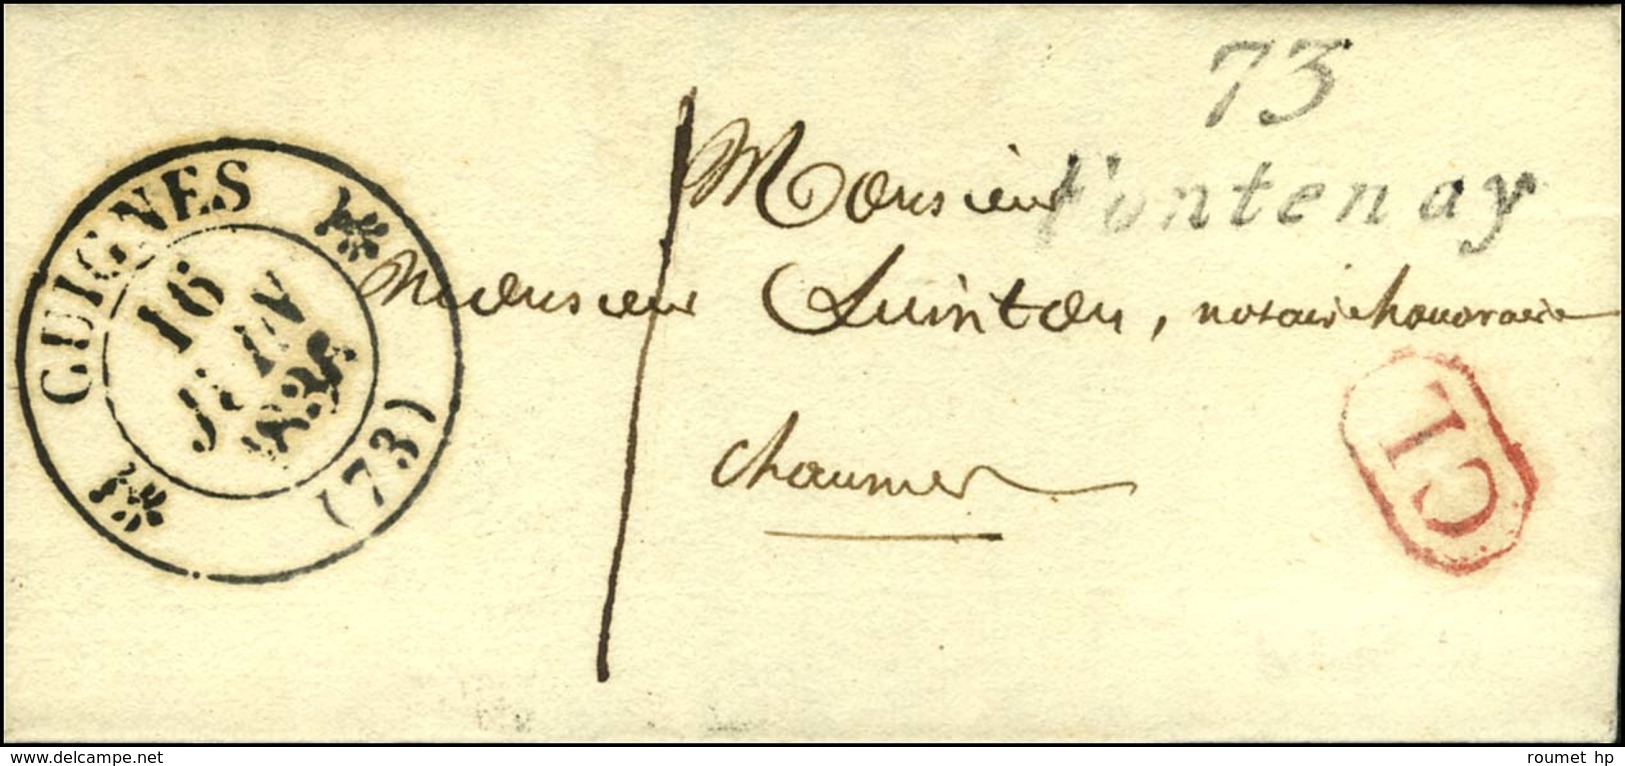 73
Fontenay
GUIGNES
16
JUIN
(73)
Monsieur
Monsieur Quinton, notaire honoraire
chaumes
CL
delcampe.net
roumet hp